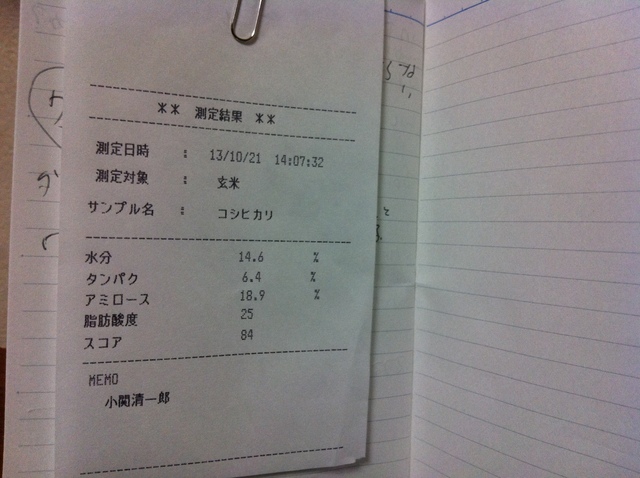 ** 測定結果 **
測定日時 : 13/10/21 14:07:32
測定対象 : 玄米
サンプル名 : コシヒカリ
水分 14.6 %
タンパク 6.4 %
アミロース 18.9 %
脂肪酸度 25
スコア 84
MEMO
小関清一郎